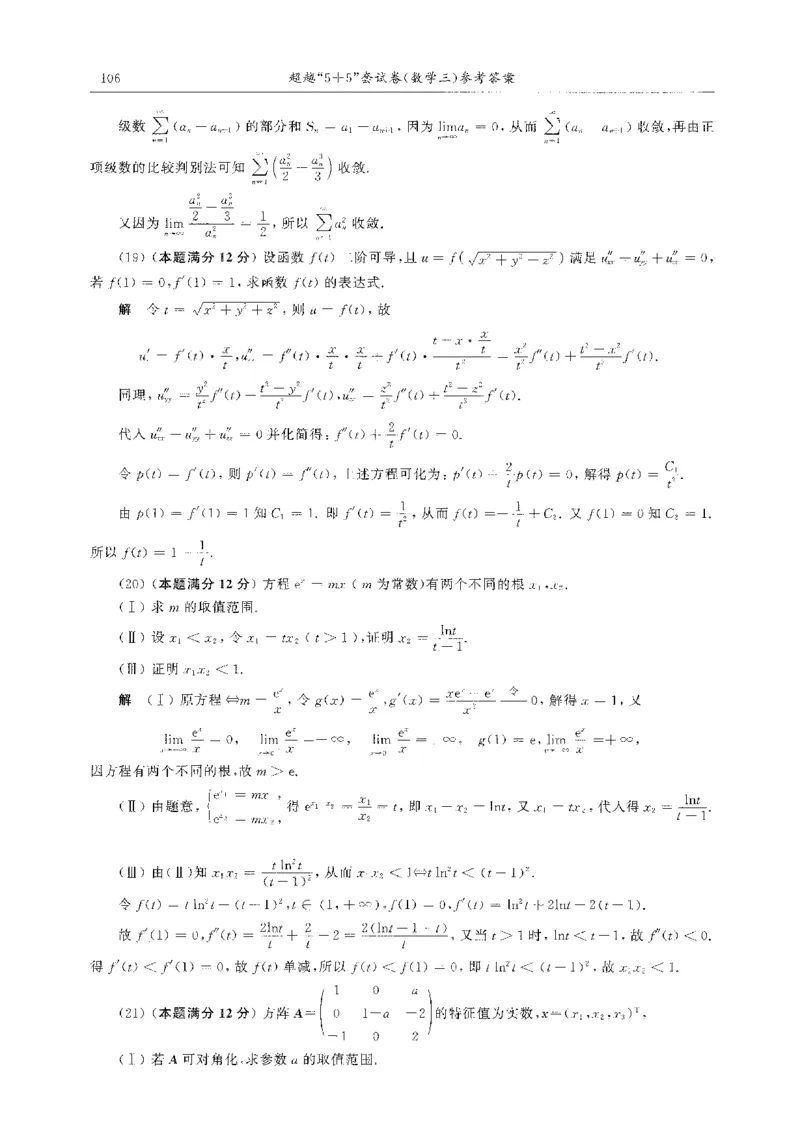 106 超越“5+5”套试卷(数学三)参考答案
级数 $\sum_{n=1}^{\infty}(a_n-a_{n+1})$ 的部分和 $S_n=a_1-a_{n+1}$, 因为 $\lim_{n\to\infty}a_n=0$, 从而 $\sum_{n=1}^{\infty}(a_n-a_{n+1})$ 收敛,再由正
项级数的比较判别法可知 $\sum_{n=1}^{\infty}\left(\frac{a_n^2}{2}-\frac{a_n^3}{3}\right)$ 收敛.
又因为 $\lim_{n\to\infty}\frac{\frac{a_n^2}{2}-\frac{a_n^3}{3}}{a_n^2}=\frac{1}{2}$, 所以 $\sum_{n=1}^{\infty}a_n^2$ 收敛.
(19)(本题满分 12 分)设函数 $f(t)$ 二阶可导,且 $u=f(\sqrt{x^2+y^2+z^2})$ 满足 $u''_{xx}+u''_{yy}+u''_{zz}=0$,
若 $f(1)=0,f'(1)=1$, 求函数 $f(t)$ 的表达式.
解 令 $t=\sqrt{x^2+y^2+z^2}$, 则 $u=f(t)$, 故
$u'_x=f'(t)\cdot\frac{x}{t},u''_{xx}=f''(t)\cdot\frac{x}{t}\cdot\frac{x}{t}+f'(t)\cdot\frac{t-x\cdot\frac{x}{t}}{t^2}=\frac{x^2}{t^2}f''(t)+\frac{t^2-x^2}{t^3}f'(t).$
同理, $u''_{yy}=\frac{y^2}{t^2}f''(t)+\frac{t^2-y^2}{t^3}f'(t),u''_{zz}=\frac{z^2}{t^2}f''(t)+\frac{t^2-z^2}{t^3}f'(t).$
代入 $u''_{xx}+u''_{yy}+u''_{zz}=0$ 并化简得: $f''(t)+\frac{2}{t}f'(t)=0.$
令 $p(t)=f'(t)$, 则 $p'(t)=f''(t)$, 上述方程可化为: $p'(t)+\frac{2}{t}p(t)=0$, 解得 $p(t)=\frac{C_1}{t^2}.$
由 $p(1)=f'(1)=1$ 知 $C_1=1$. 即 $f'(t)=\frac{1}{t^2}$, 从而 $f(t)=-\frac{1}{t}+C_2$. 又 $f(1)=0$ 知 $C_2=1$.
所以 $f(t)=1-\frac{1}{t}.$
(20)(本题满分 12 分)方程 $e^x=mx$ ( $m$ 为常数)有两个不同的根 $x_1,x_2$.
(Ⅰ)求 $m$ 的取值范围.
(Ⅱ)设 $x_1<x_2$, 令 $x_1=tx_2$ ( $t>1$ ),证明 $x_2=\frac{\ln t}{t-1}.$
(Ⅲ)证明 $x_1x_2<1$.
解 (Ⅰ)原方程 $\Leftrightarrow m=\frac{e^x}{x}$, 令 $g(x)=\frac{e^x}{x},g'(x)=\frac{xe^x-e^x}{x^2}\overset{令}{=}0$, 解得 $x=1$, 又
$\lim_{x\to-\infty}\frac{e^x}{x}=0,\ \lim_{x\to0^-}\frac{e^x}{x}=-\infty,\ \lim_{x\to0^+}\frac{e^x}{x}=+\infty,\ g(1)=e,\lim_{x\to+\infty}\frac{e^x}{x}=+\infty,$
因方程有两个不同的根,故 $m>e$.
(Ⅱ)由题意, $\begin{cases}e^{x_1}=mx_1,\\e^{x_2}=mx_2,\end{cases}$ 得 $e^{x_1-x_2}=\frac{x_1}{x_2}=t$, 即 $x_1-x_2=\ln t$, 又 $x_1=tx_2$, 代入得 $x_2=\frac{\ln t}{t-1}.$
(Ⅲ)由(Ⅱ)知 $x_1x_2=\frac{t\ln^2t}{(t-1)^2}$, 从而 $x_1x_2<1\Leftrightarrow t\ln^2t<(t-1)^2$.
令 $f(t)=t\ln^2t-(t-1)^2,t\in(1,+\infty),f(1)=0,f'(t)=\ln^2t+2\ln t-2(t-1)$.
故 $f'(1)=0,f''(t)=\frac{2\ln t}{t}+\frac{2}{t}-2=\frac{2(\ln t+1-t)}{t}$, 又当 $t>1$ 时, $\ln t<t-1$, 故 $f''(t)<0$.
得 $f'(t)<f'(1)=0$, 故 $f(t)$ 单减,所以 $f(t)<f(1)=0$, 即 $t\ln^2t<(t-1)^2$, 故 $x_1x_2<1$.
(21)(本题满分 12 分)方阵 $A=\begin{pmatrix}1&0&a\\0&1-a&-2\\-1&0&2\end{pmatrix}$ 的特征值为实数, $x=(x_1,x_2,x_3)^T$,
(Ⅰ)若 $A$ 可对角化,求参数 $a$ 的取值范围.